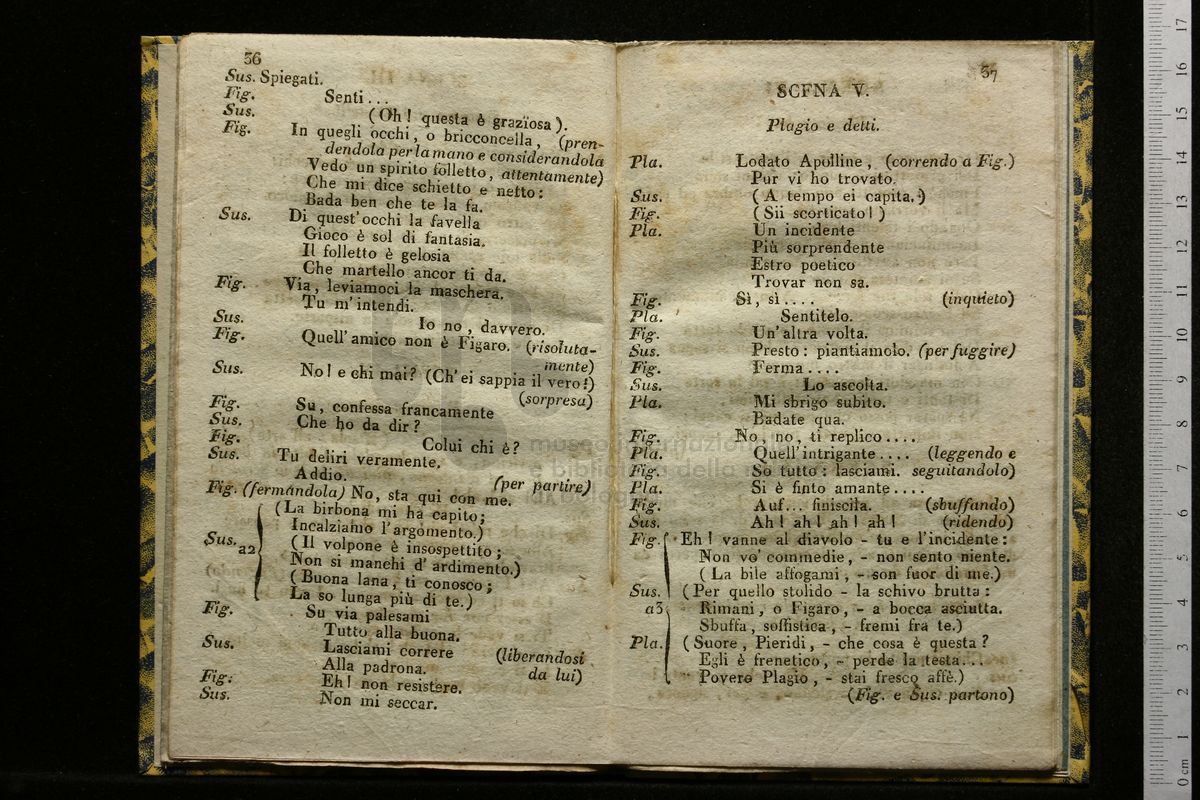 36
Sus. Spiegati.
Fig. Senti...
Sus. (Oh! questa è graziosa).
Fig. In quegli occhi, o bricconcella, (pren-
dendola per la mano e considerandola
Vedo un spirito folletto, attentamente)
Che mi dice schietto e netto:
Bada ben che te la fa.
Sus. Di quest'occhi la favella
Gioco è sol di fantasia.
Il folletto è gelosia
Che martello ancor ti da.
Fig. Via, leviamoci la maschera.
Tu m'intendi.
Sus. Io no, davvero.
Fig. Quell'amico non è Figaro. (risoluta-
mente)
Sus. No! e chi mai? (Ch'ei sappia il vero!)
(sorpresa)
Fig. Su, confessa francamente
Sus. Che ho da dir?
Fig. Colui chi è?
Sus. Tu deliri veramente.
Addio. (per partire)
Fig. (fermandola) No, sta qui con me.
(La birbona mi ha capito;
Incalziamo l'argomento.)
Sus. a2 (Il volpone è insospettito;
Non si manchi d'ardimento.)
(Buona lana, ti conosco;
La so lunga più di te.)
Fig. Su via palesami
Tutto alla buona.
Sus. Lasciami correre (liberandosi
Alla padrona. da lui)
Fig. Eh! non resistere.
Sus. Non mi seccar.
37
SCFNA V.
Plagio e detti.
Pla. Lodato Apolline, (correndo a Fig.)
Pur vi ho trovato.
Sus. (A tempo ei capita.)
Fig. (Sii scorticato!)
Pla. Un incidente
Più sorprendente
Estro poetico
Trovar non sa.
Fig. Sì, sì.... (inquieto)
Pla. Sentitelo.
Fig. Un'altra volta.
Sus. Presto: piantiamolo. (per fuggire)
Fig. Ferma....
Sus. Lo ascolta.
Pla. Mi sbrigo subito.
Badate qua.
Fig. No, no, ti replico....
Pla. Quell'intrigante.... (leggendo e
Fig. So tutto: lasciami. seguitandolo)
Pla. Si è finto amante....
Fig. Auf... finiscila. (sbuffando)
Sus. Ah! ah! ah! ah! (ridendo)
Fig. Eh! vanne al diavolo - tu e l'incidente:
Non vo' commedie, - non sento niente.
(La bile affogami, - son fuor di me.)
Sus. (Per quello stolido - la schivo brutta:
a3 Rimani, o Figaro, - a bocca asciutta.
Sbuffa, soffistica, - fremi fra te.)
Pla. (Suore, Pieridi, - che cosa è questa?
Egli è frenetico, - perde la testa...
Povero Plagio, - stai fresco affè.)
(Fig. e Sus. partono)